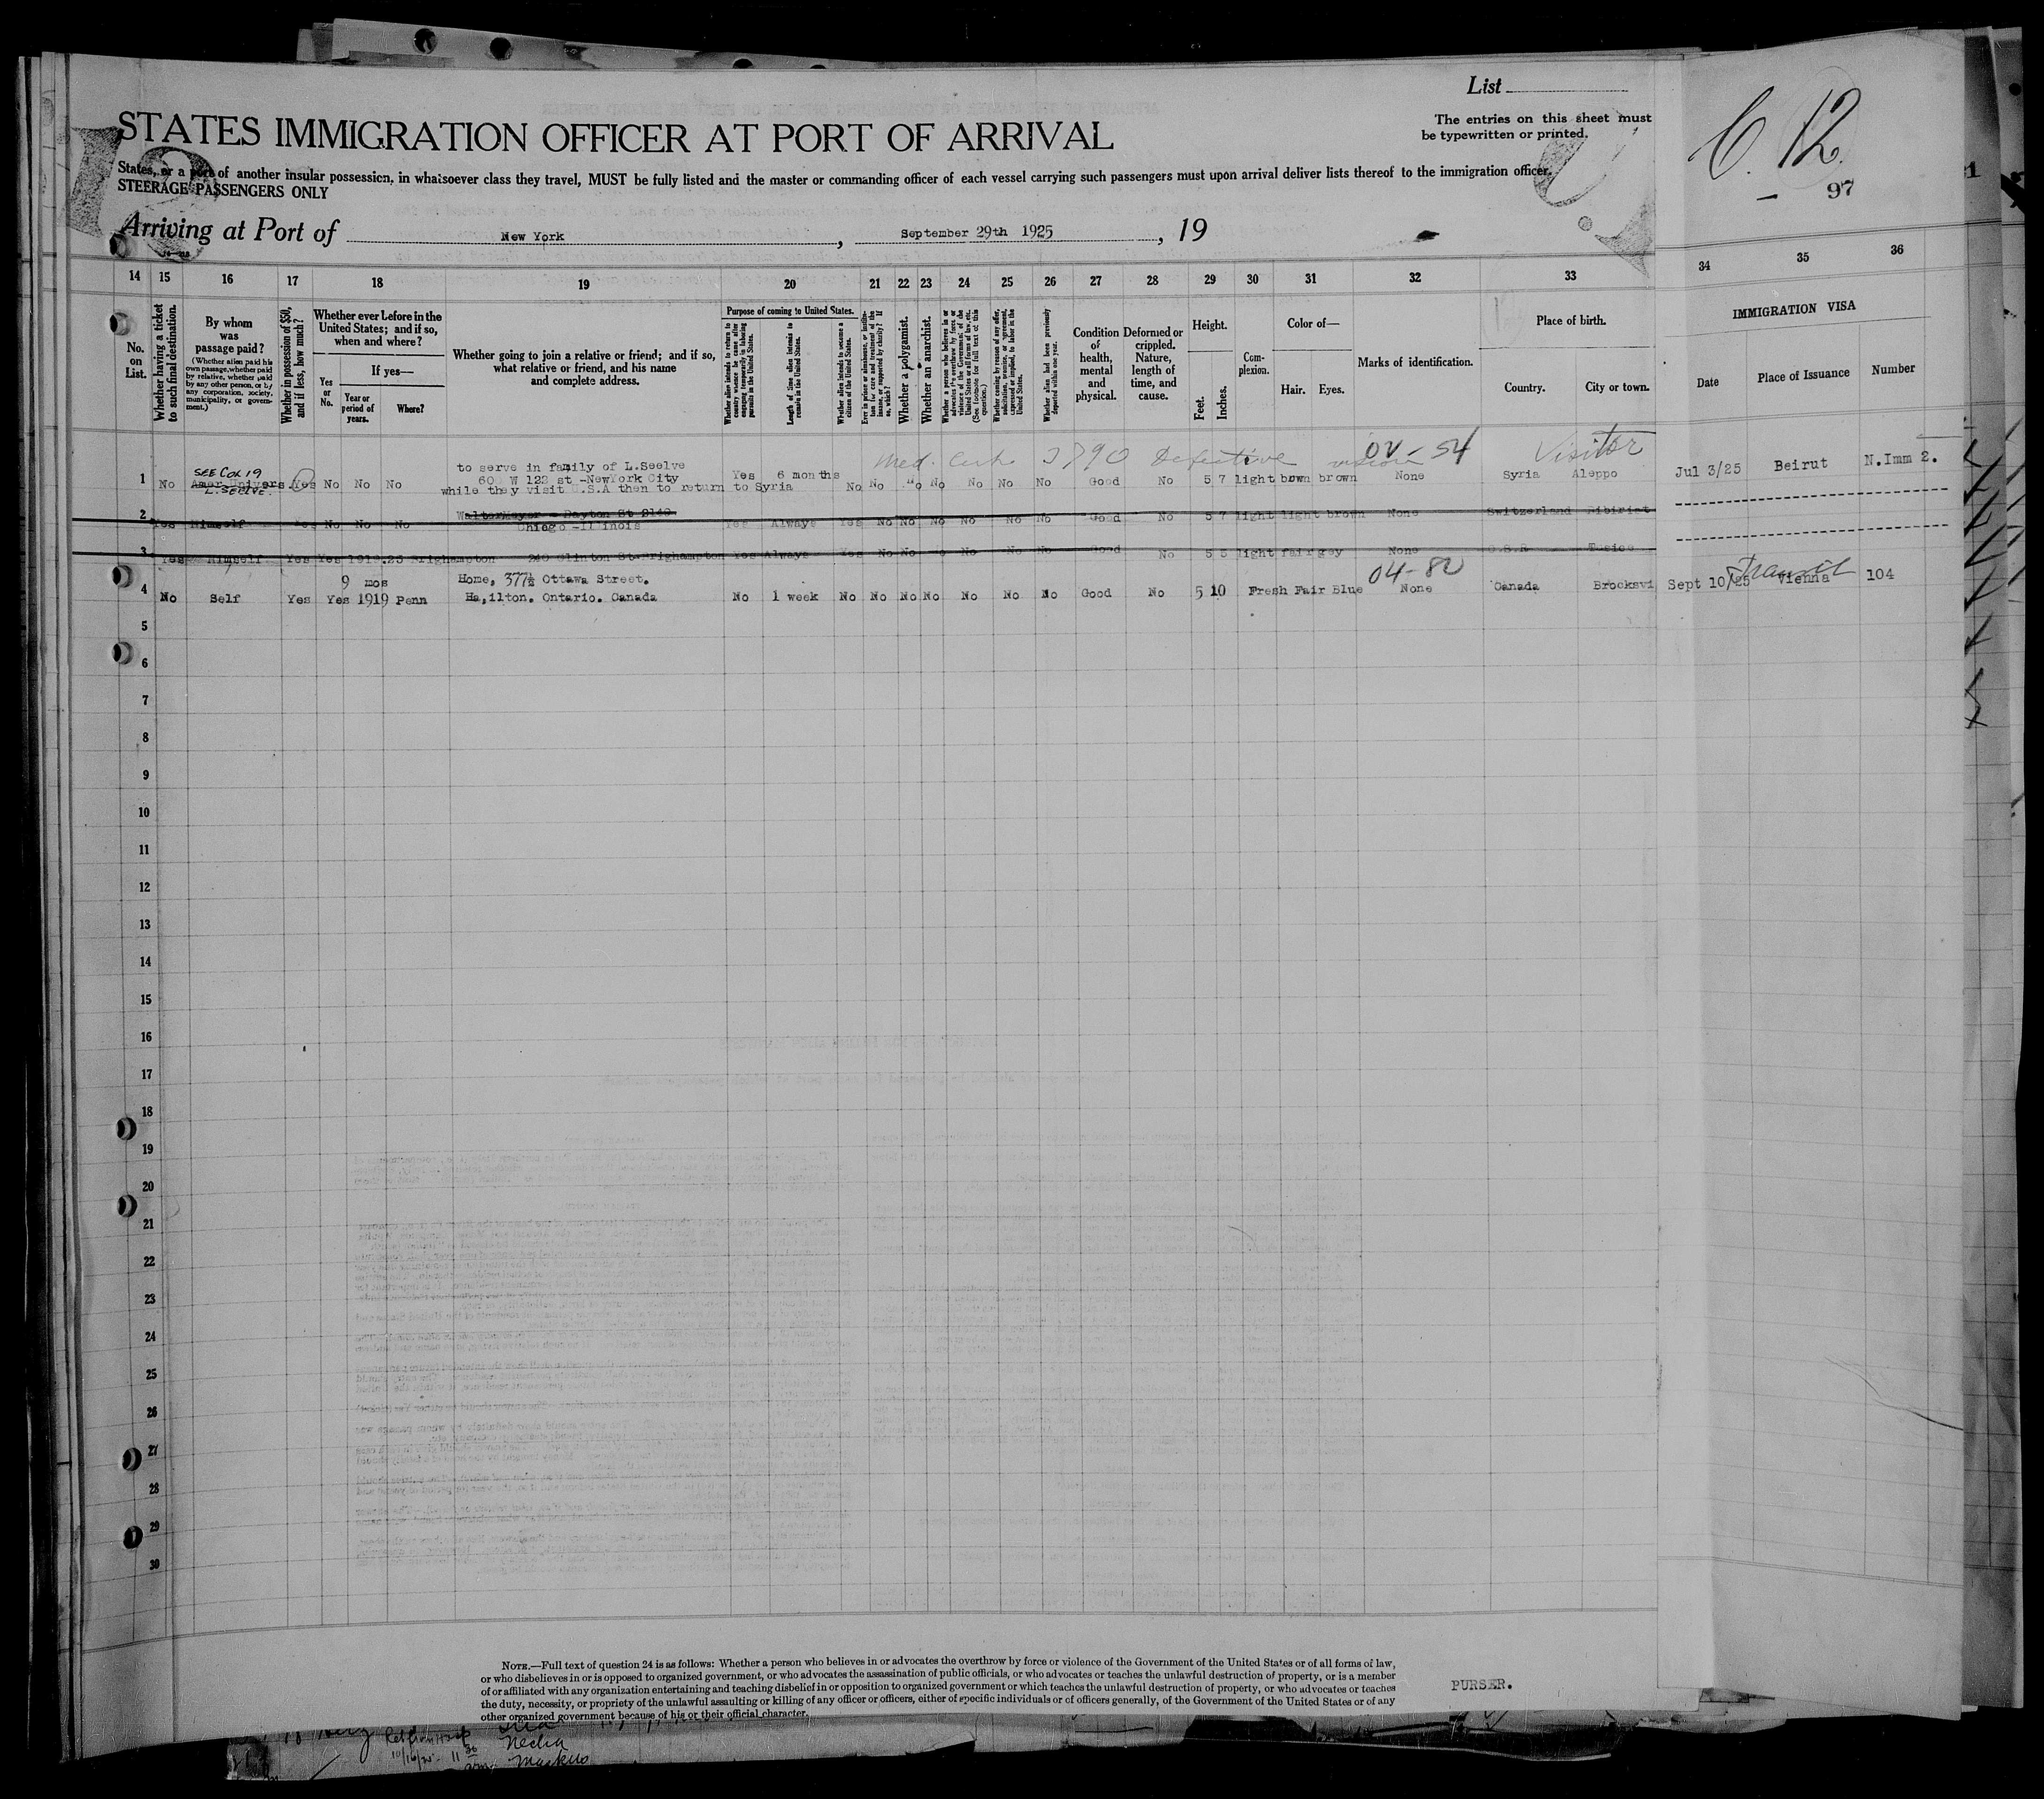 List
The entries on this sheet must
be typewritten or printed.
STATES IMMIGRATION OFFICER AT PORT OF ARRIVAL
States, or a port of another insular possession, in whatsoever class they travel, MUST be fully listed and the master or commanding officer of each vessel carrying such passengers must upon arrival deliver lists thereof to the immigration officer.
STEERAGE PASSENGERS ONLY
Arriving at Port of New York, September 29th 1925, 19
C. 12.
97
14 15 16 17 18 19 20 21 22 23 24 25 26 27 28 29 30 31 32 33 34 35 36
No. on List.
Whether having a ticket to such final destination.
By whom was passage paid?
(Whether alien paid his own passage, whether paid by relative, whether paid by any other person, or by any corporation, society, municipality, or government.)
Whether in possession of $50, and if less, how much?
Whether ever before in the United States; and if so, when and where?
Yes or No.
If yes—
Year or period of years.
Where?
Whether going to join a relative or friend; and if so, what relative or friend, and his name and complete address.
Purpose of coming to United States.
Whether alien intends to return to country whence he came after engaging temporarily in laboring pursuits in the United States.
Length of time alien intends to remain in the United States.
Whether alien intends to become a citizen of the United States.
Ever in prison or almshouse, or institution for care and treatment of the insane, or supported by charity? If so, which?
Whether a polygamist.
Whether an anarchist.
Whether a person who believes in or advocates the overthrow by force or violence of the Government of the United States or all forms of law, etc. (See footnote for full text of this question.)
Whether coming by reason of any offer, solicitation, promise, or agreement, expressed or implied, to labor in the United States.
Whether alien had been previously deported within one year.
Condition of health, mental and physical.
Deformed or crippled. Nature, length of time, and cause.
Height.
Feet. Inches.
Complexion.
Color of—
Hair. Eyes.
Marks of identification.
Place of birth.
Country. City or town.
IMMIGRATION VISA
Date Place of Issuance Number
Med. Cert. Defective vision 0V-54 Visitor
SEE COL 19
1 No Amer Univers. Yes No No No
L. SEELVE.
to serve in family of L.Seelve
60 W 122 st -NewYork City
while they visit U.S.A then to return to Syria
Yes 6 months No No No No No No No Good No 5 7 light brown brown None Syria Aleppo Jul 3/25 Beirut N.Imm 2.
2 Yes Himself Yes No No No
WalterMeyer - Dayton St 2140
Chicago -Illinois
Yes Always Yes No No No No No No Good No 5 7 light light brown None Switzerland
3 Yes Himself Yes Yes 1914.25 Brighampton 240 Clinton St-Brighampton Yes Always Yes No No No No No Good No 5 5 light fair grey None
04-80 Transit
9 mos
4 No Self Yes Yes 1919 Penn
Home, 377½ Ottawa Street.
Ha,ilton. Ontario. Canada
No 1 week No No No No No No No Good No 5 10 Fresh Fair Blue None Canada Brocksvi Sept 10/25 Vienna 104
5
6
7
8
9
10
11
12
13
14
15
16
17
18
19
20
21
22
23
24
25
26
27
28
29
30
NOTE.—Full text of question 24 is as follows: Whether a person who believes in or advocates the overthrow by force or violence of the Government of the United States or of all forms of law,
or who disbelieves in or is opposed to organized government, or who advocates the assassination of public officials, or who advocates or teaches the unlawful destruction of property, or is a member
of or affiliated with any organization entertaining and teaching disbelief in or opposition to organized government or which teaches the unlawful destruction of property, or who advocates or teaches
the duty, necessity, or propriety of the unlawful assaulting or killing of any officer or officers, either of specific individuals or of officers generally, of the Government of the United States or of any
other organized government because of his or their official character.
PURSER.
Necha
Markus